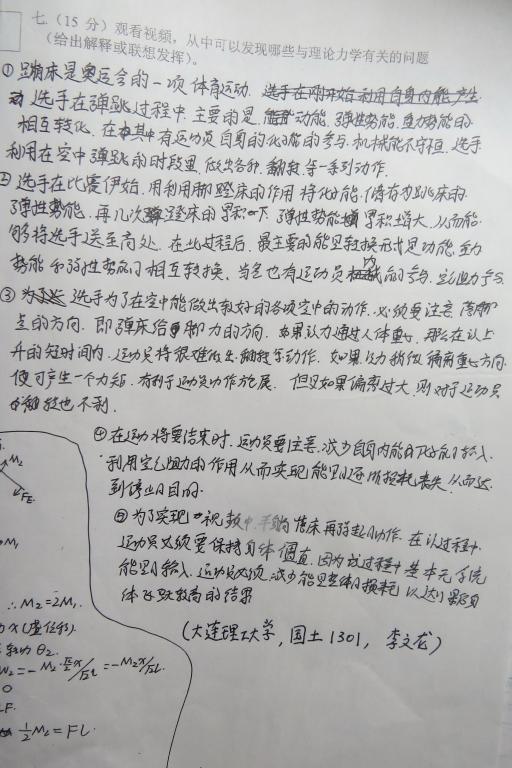 七.（15 分）观看视频，从中可以发现哪些与理论力学有关的问题
（给出解释或联想发挥）。
①蹦床是奥运会的一项体育运动.
选手在弹跳过程中.主要的是动能.弹性势能.重力势能的
相互转化.在其中有运动员自身的化学能的参与.机械能不守恒.选手
利用在空中弹跳的时段里.做出各种.翻转.等一系列动作.
②选手在比赛伊始.用利用脚蹬床的作用将化学能.储存为跳床的
弹性势能.再几次蹬床的累积下.弹性势能累积增大.从而能
够将选手送至高处.在此过程后.最主要的能量转换形式是动能.重力
势能和弹性势能的相互转换.当然也有运动员内能的参与.空气阻力参与.
③选手为了在空中能做出较好的各项空中的动作.必须要注意落脚
点的方向.即弹床给脚力的方向.如果该力通过人体重心.那么在以上
升的短时间内.运动员将很难做出.翻转等动作.如果该力稍微偏离重心方向.
便可产生一个力矩.有利于运动员动作施展.但是如果偏离过大.则对于运动员
的翻转也不利.
④在运动将要结束时.运动员要注意.减少自身内能的输入.
利用空气阻力的作用从而实现能量的逐渐损耗丧失.从而达
到停止的目的.
⑤为了实现视频中.蹦床再弹起的动作.在该过程中
运动员必须要保持身体僵直.因为该过程中基本无
能量的输入.运动员必须.减少能量整体的损耗以达
体飞跃较高的结果
(大连理工大学，国土1301，李文龙)
M₂
FE.
M₁
∴M₂=2M₁.
(虚位移).
θ₂.
=-M₂x/2L.
0
½M₂=FL.